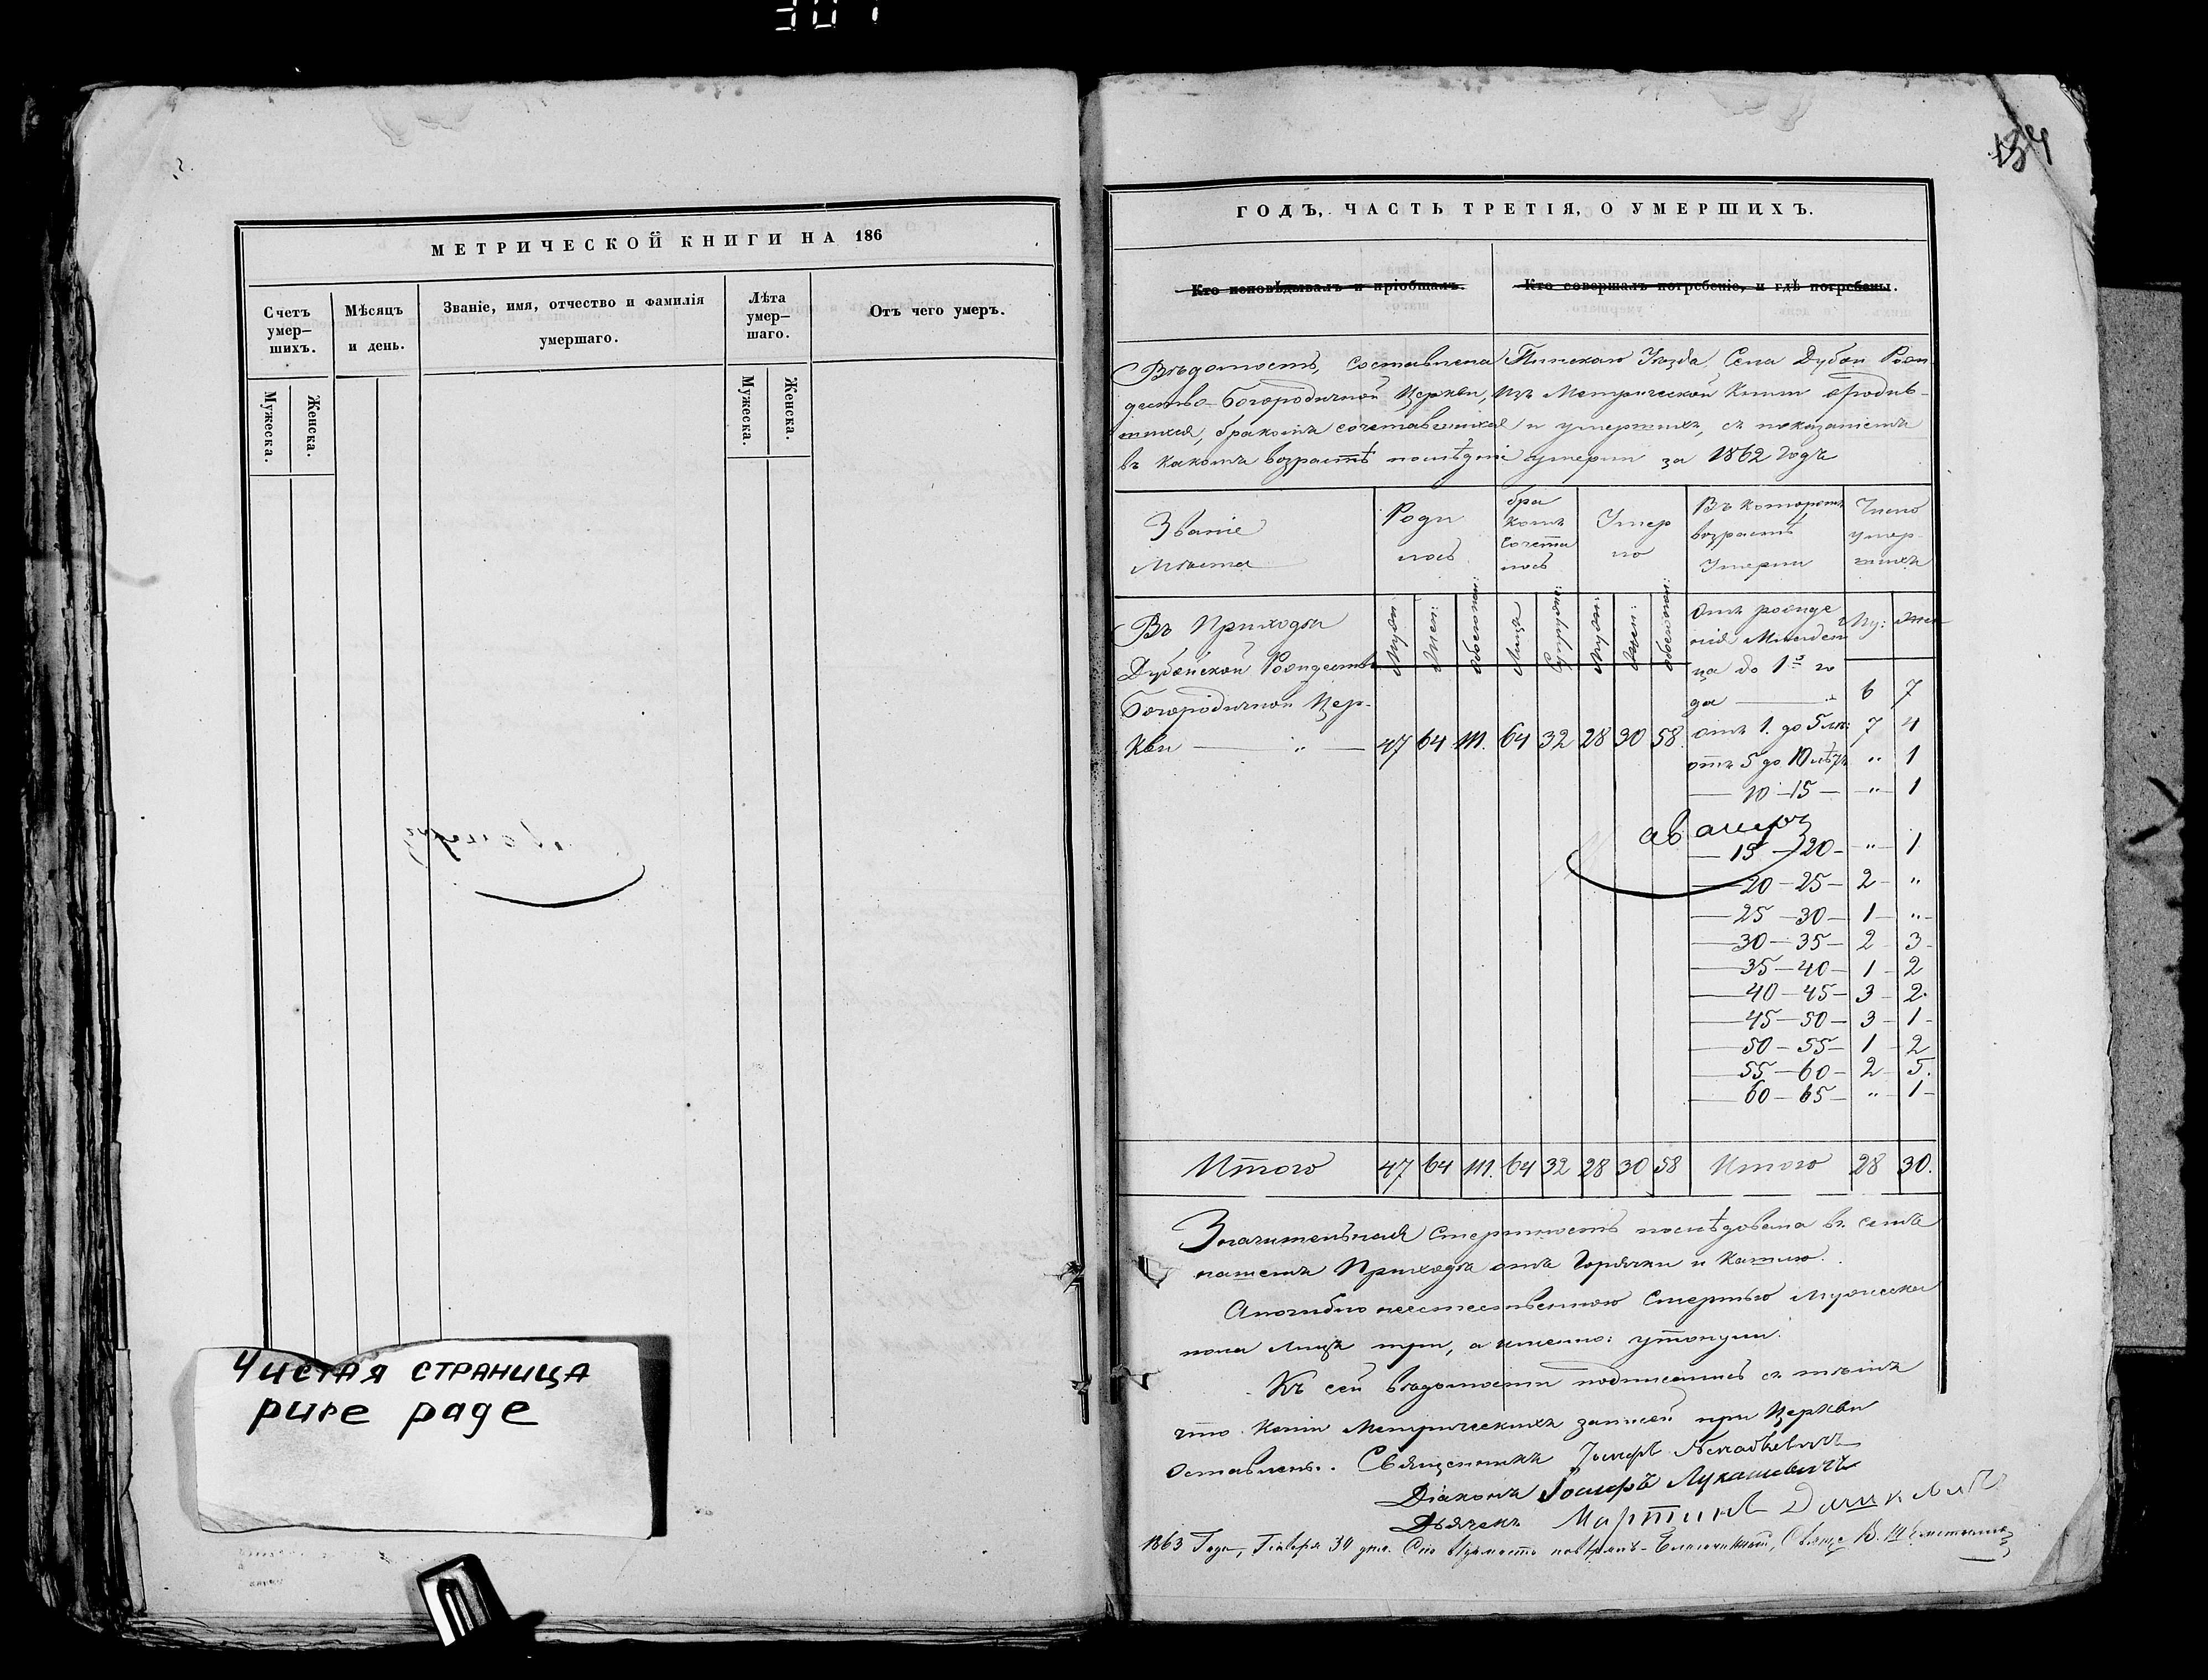 307
МЕТРИЧЕСКОЙ КНИГИ НА 186
Счетъ умер-шихъ.
Мѣсяцъ и день.
Званіе, имя, отчество и фамилія умершаго.
Лѣта умер-шаго.
Отъ чего умеръ.
Мужеска.
Женска.
Мужеска.
Женска.
Чистая страница
pure page
154
ГОДЪ, ЧАСТЬ ТРЕТІЯ, О УМЕРШИХЪ.
Кто исповѣдывалъ и пріобщалъ.
Кто совершалъ погребеніе, и гдѣ погребены.
Вѣдомость, составлена Пинскаго Уѣзда, Села Дубои Рож
дество-Богородичной Церкви, изъ Метрической Книги о родив-
шихся, бракомъ сочетавшихся и умершихъ, съ показаніемъ
въ какомъ возрастѣ послѣдніе умерли за 1862 Годъ
Званіе Мѣста
Роди лось
бра комъ сочета лось
Умер ло
Въ которомъ возрастѣ Умерли
Число умер шихъ
Муж:
Жен:
обоего пол:
Лицъ
Супруж:
Муж:
Жен:
обоего пол:
Му:
Жен
Въ Приходѣ
Дубойской Рождество
Богородичной Цер-
кви — „ — 47 64 111. 64 32 28 30 58.
Отъ рожде
нія Младен
ца до 1го го
да — 6 7
отъ 1. до 5 лѣ: 7 4
отъ 5 до 10 лѣтъ „ 1
— 10 — 15 — „ 1
— 15 — 20 — „ 1
— 20 — 25 — 2 „
— 25 — 30 — 1 — „
— 30 — 35 — 2 3
— 35 — 40 — 1 — 2
— 40 — 45 — 3 — 2.
— 45 — 50 — 3 — 1
— 50 — 55 — 1 2
— 55 — 60 — 2 5.
— 60 — 65 — „ 1 —
Итого 47 64 111. 64 32 28 30 58 Итого 28 30.
Значительная Смертность послѣдовала въ семъ
нашемъ Приходѣ отъ Горячки и Кашлю.
А погибло неестественною Смертью мужеска
пола лицъ три, а именно: утонули.
Къ сей вѣдомости подписались съ тѣмъ
что копіи Метрическихъ записей при Церкви
Оставлены. Священникъ Іосифъ
Діаконъ Іосифъ Лукашевичъ
Дьячекъ Мартинъ
1863 Года, Генваря 30 дня. Сію вѣдомость повѣрялъ Благочинный, Священ В.